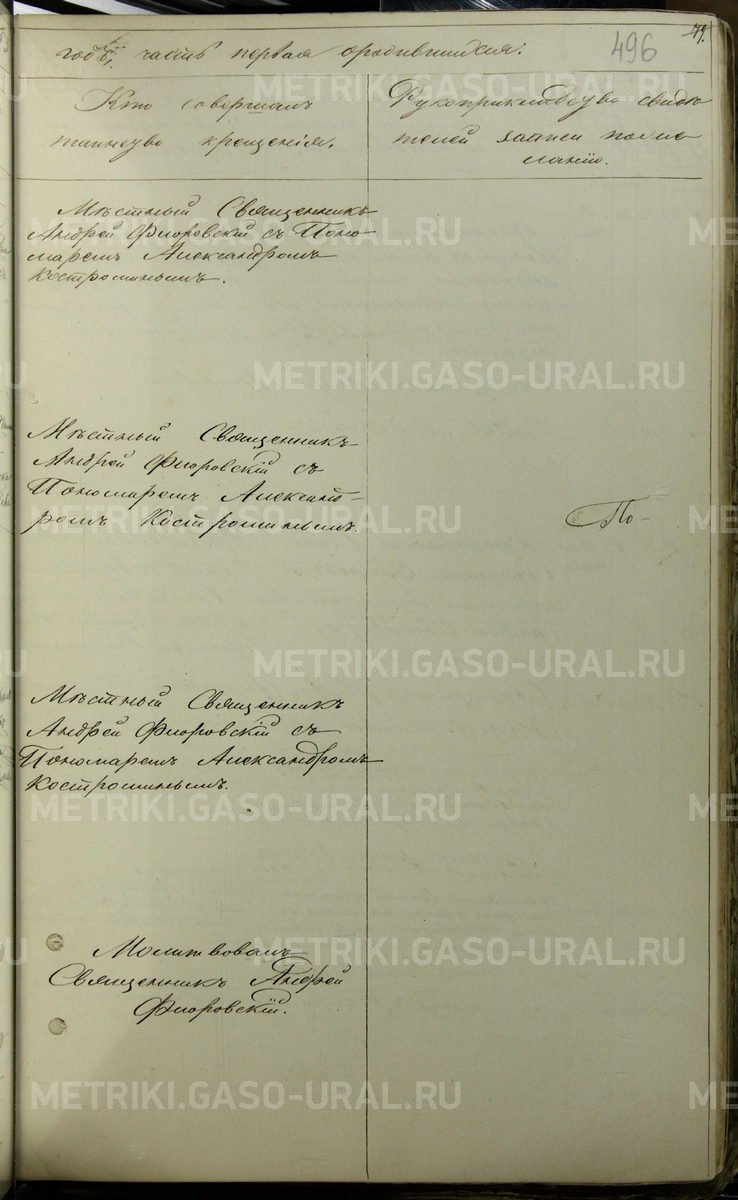 496
79.
годъ, часть первая о родившихся.
Кто совершалъ
таинство крещенія.
Рукоприкладство свидѣ
телей записи по же
ланію.
Мѣстный Священникъ
Андрей Флоровскій съ Поно
маремъ Александромъ
Костроминымъ.
Мѣстный Священникъ
Андрей Флоровскій съ
Пономаремъ Александ-
ромъ Костроминымъ.
По-
Мѣстный Священникъ
Андрей Флоровскій съ
Пономаремъ Александромъ
Костроминымъ.
Молитвовалъ
Священникъ Андрей
Флоровскій.
METRIKI.GASO-URAL.RU